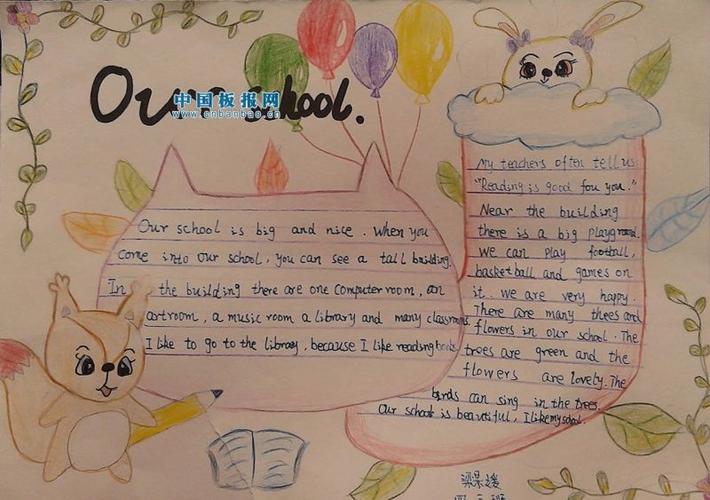 Our school.
中国板报网
www.cnbanbao.cn
Our school is big and nice. When you
come into our school, you can see a tall building.
In the building there are one computer room, an
artroom, a music room a library and many classrooms.
I like to go to the library, because I like reading books.
My teachers often tell us:
"Reading is good fou you."
Near the building
there is a big playground
we can play football,
basketball and games on
it. we are very happy.
There are many thees and
flowers in our school. The
trees are green and the
flowers are lovely. The
birds can sing in the trees.
Our school is beautiful, I like my school.